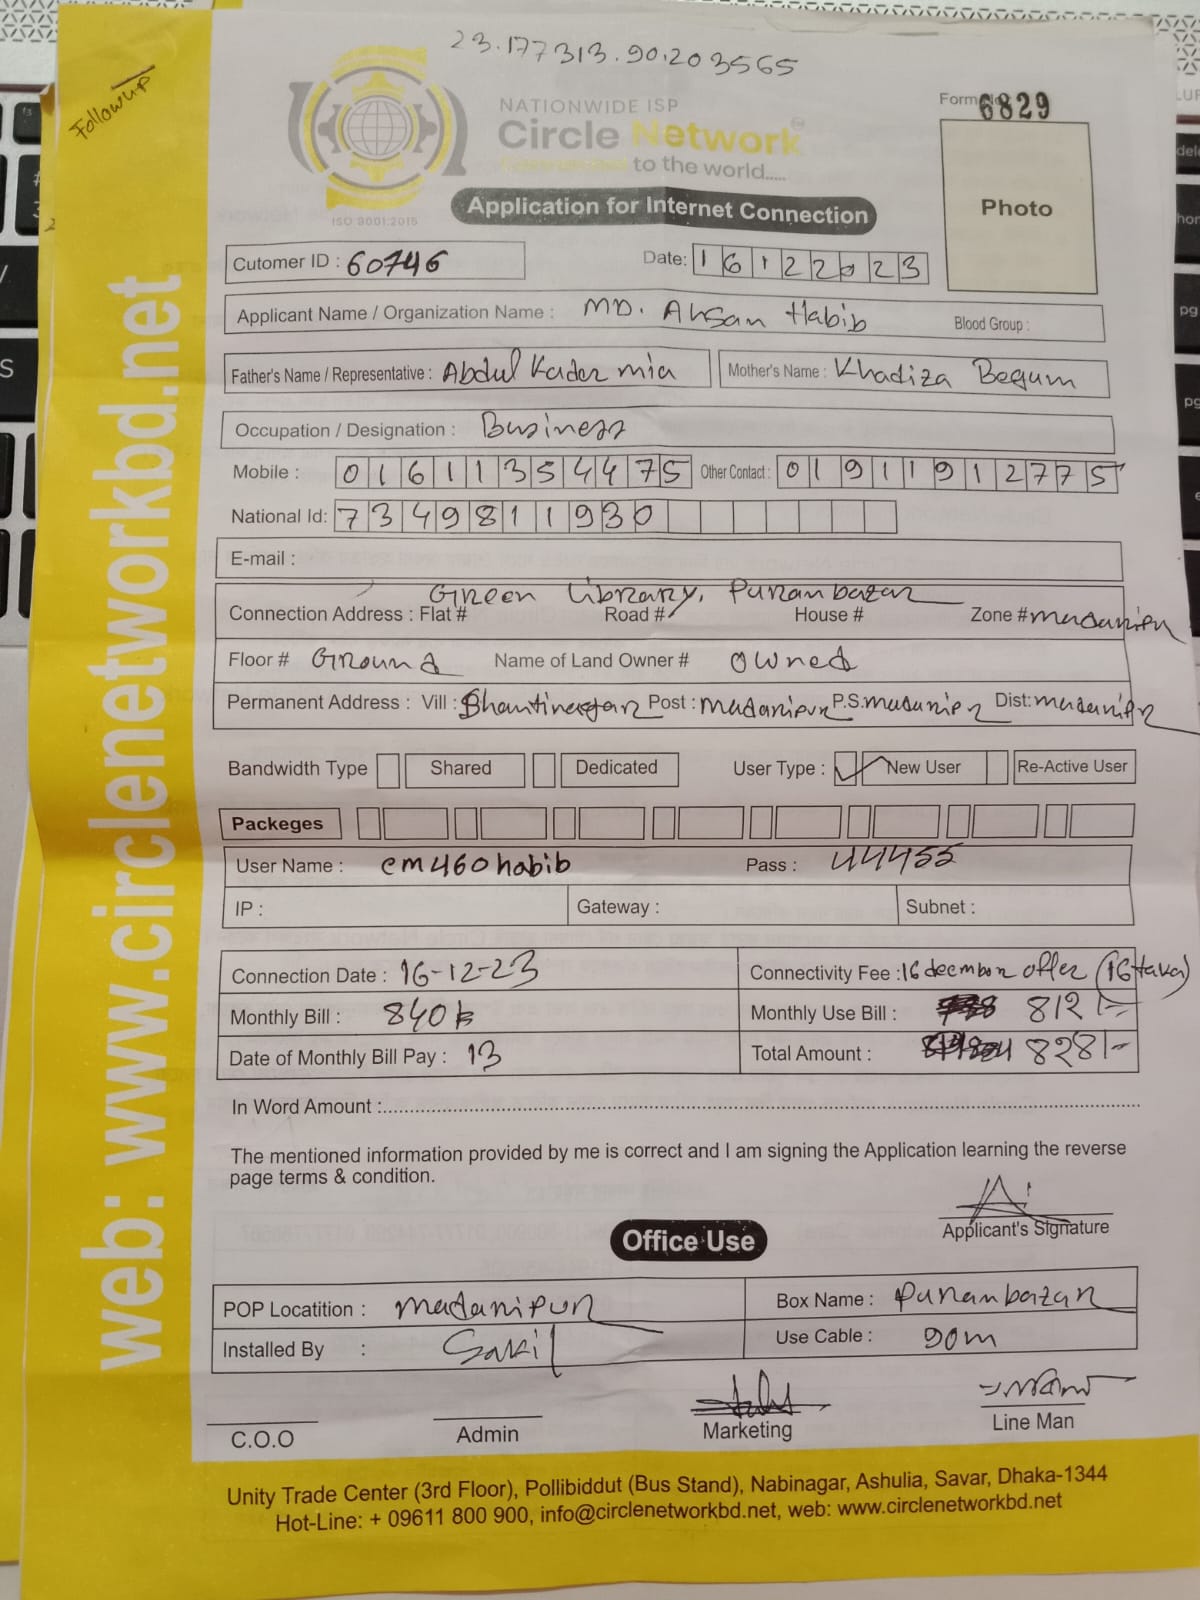 23.177313.90.203565
Followup
NATIONWIDE ISP
Form No 6829
Circle Network
to the world.....
ISO 9001:2015
Application for Internet Connection
Photo
Cutomer ID : 60746 Date: 16122023
Applicant Name / Organization Name : MD. Ahsan Habib Blood Group :
Father's Name / Representative : Abdul Kader mia Mother's Name : Khadiza Begum
Occupation / Designation : Business
Mobile : 01611354475 Other Contact : 01911912775
National Id: 7349811930
E-mail :
Green Library, Puranbazar
Connection Address : Flat # Road # House # Zone # madaripur
Floor # Ground Name of Land Owner # owned
Permanent Address : Vill : Post : madaripur P.S. madaripur Dist: madaripur
Bandwidth Type Shared Dedicated User Type : New User Re-Active User
Packeges
User Name : cm460habib Pass : 44455
IP : Gateway : Subnet :
Connection Date : 16-12-23 Connectivity Fee : 16 decembar offer (16 taka)
Monthly Bill : 840 Monthly Use Bill : 812/-
Date of Monthly Bill Pay : 13 Total Amount : 828/-
In Word Amount :
The mentioned information provided by me is correct and I am signing the Application learning the reverse
page terms & condition.
Applicant's Signature
Office Use
POP Locatition : madaripur Box Name : Puranbazar
Installed By : Sakil Use Cable : 90m
C.O.O Admin Marketing Line Man
Unity Trade Center (3rd Floor), Pollibiddut (Bus Stand), Nabinagar, Ashulia, Savar, Dhaka-1344
Hot-Line: + 09611 800 900, info@circlenetworkbd.net, web: www.circlenetworkbd.net
web: www.circlenetworkbd.net